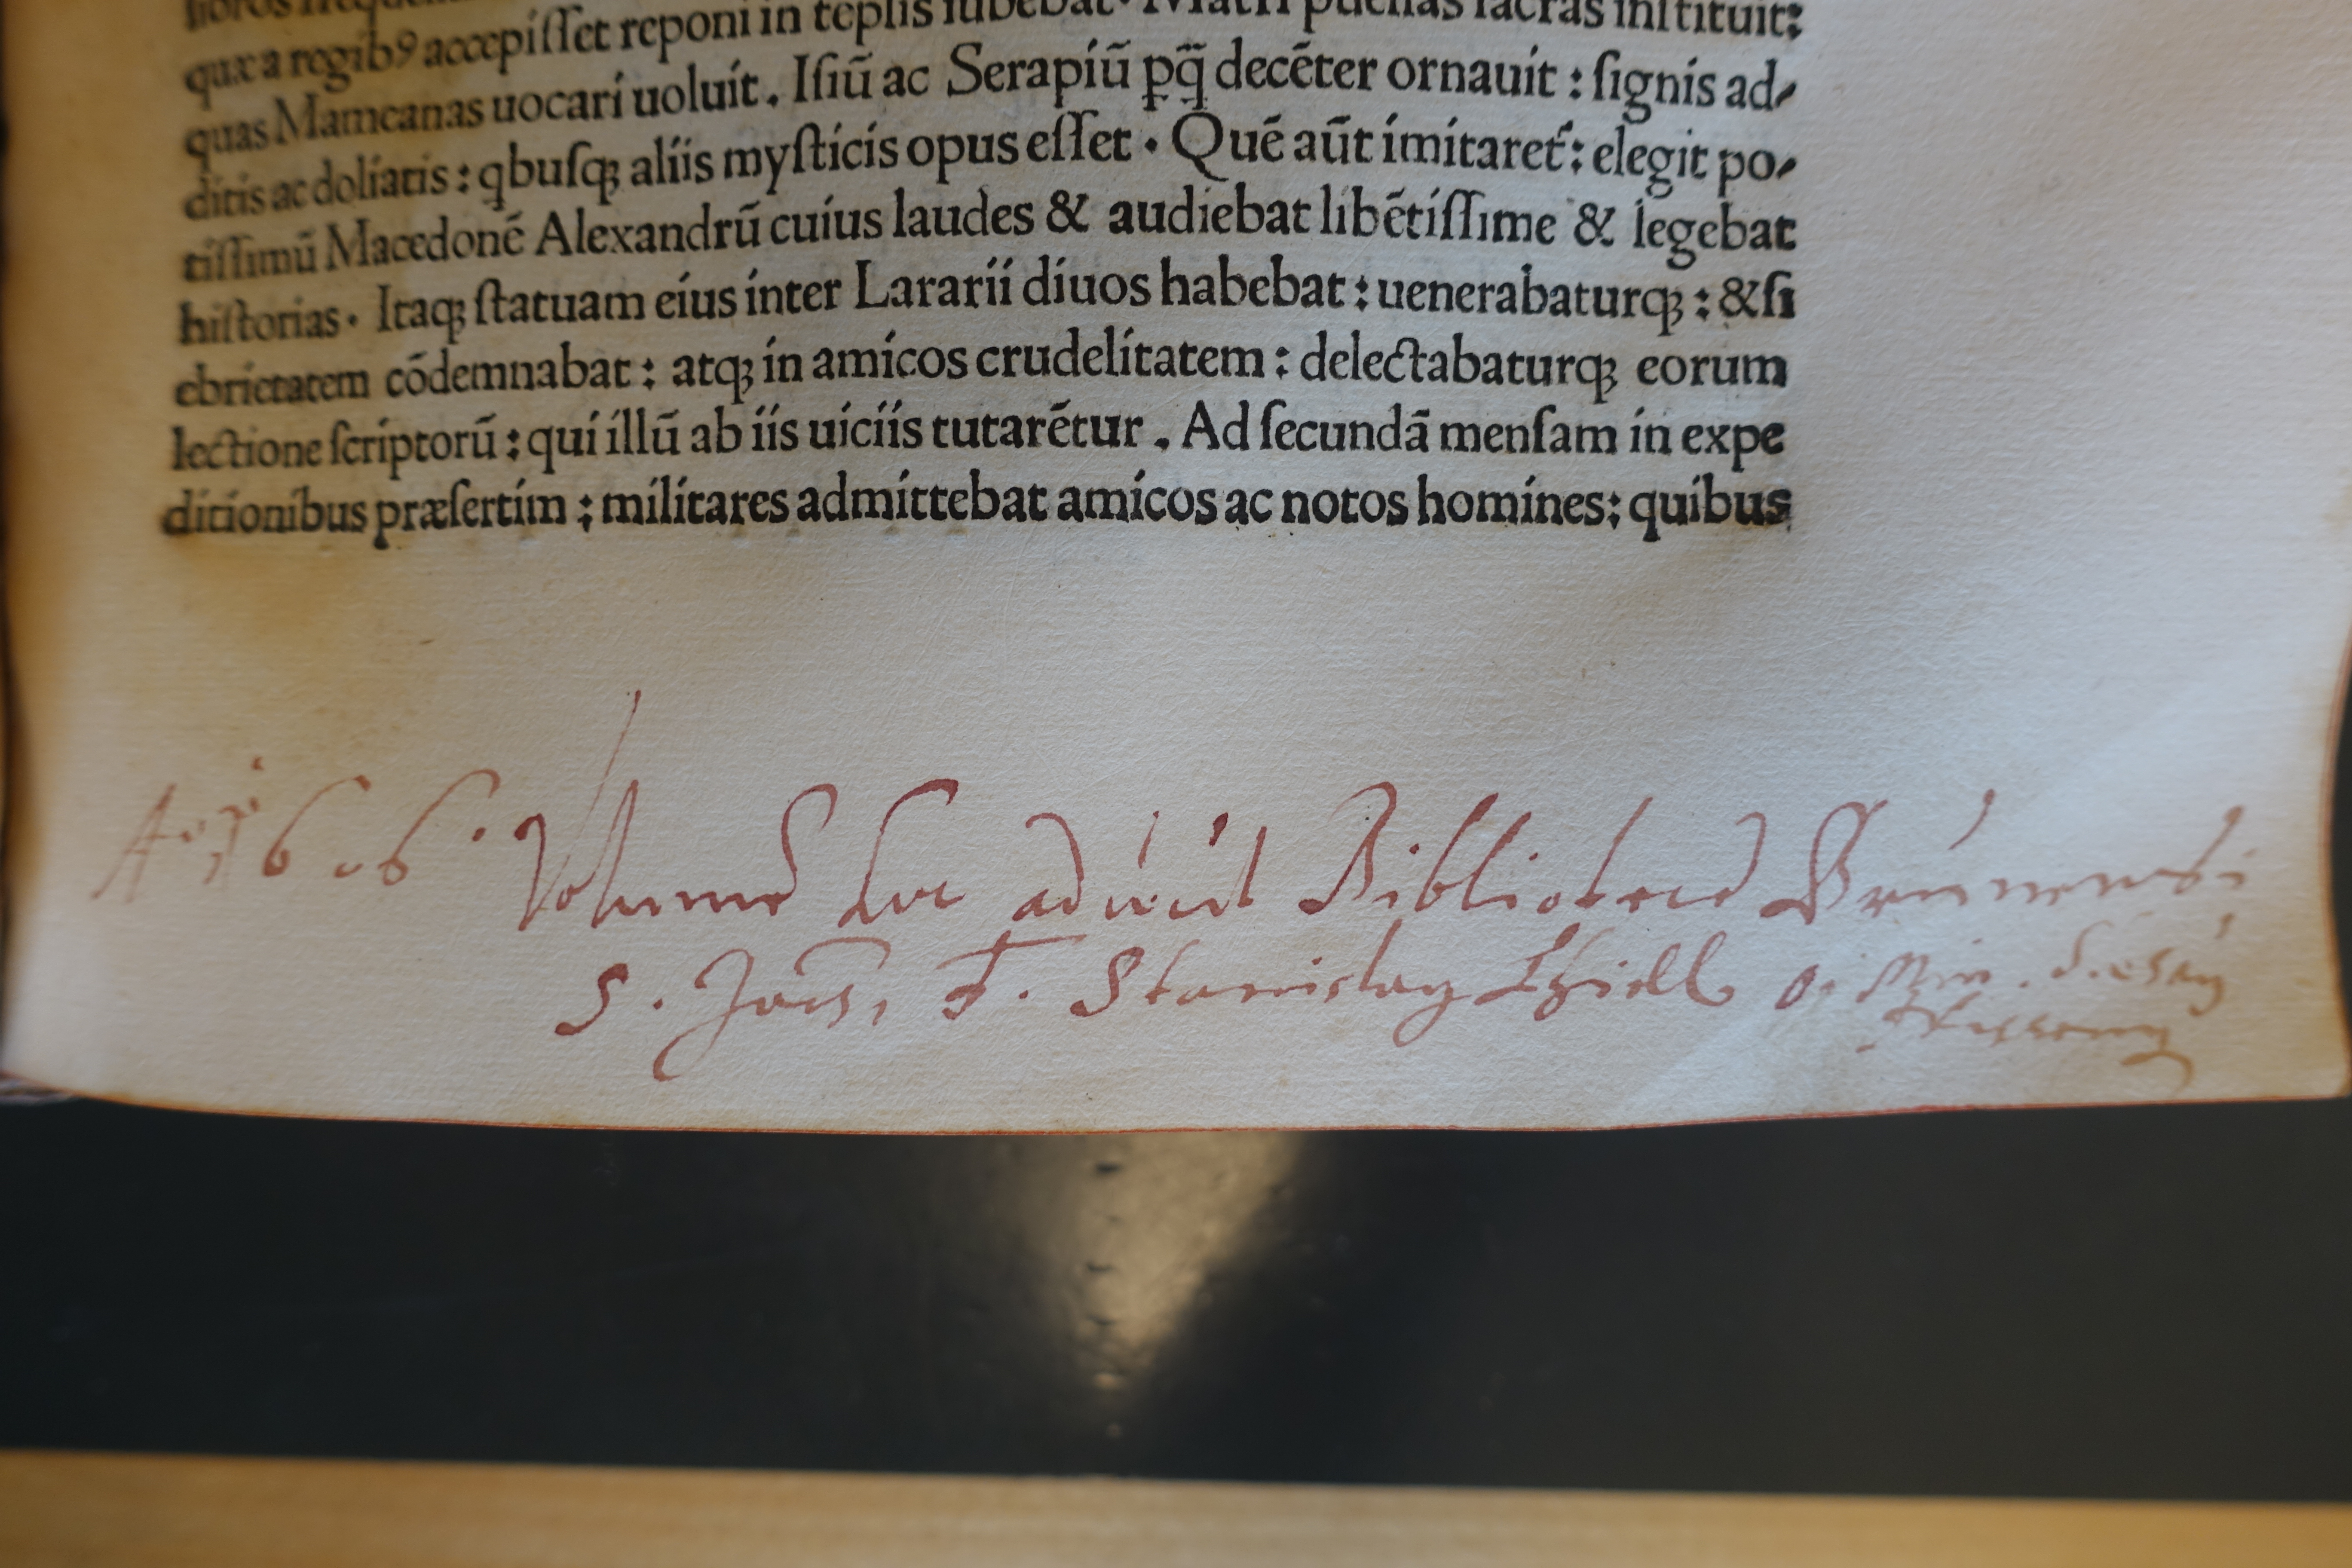 libros frequen
quæ a regib9 accepisset reponi in tēplis iubebat · Matri puellas sacras instituit:
quas Mameanas uocari uoluit . Isiū ac Serapiū ꝑq̄ decēter ornauit : signis ad-
ditis ac doliatis : qbusqꝫ aliis mysticis opus esset · Quē aūt imitaret᷑ : elegit po-
tissimū Macedonē Alexandrū cuius laudes & audiebat libētissime & legebat
historias · Itaqꝫ statuam eius inter Lararii diuos habebat : uenerabaturqꝫ : & si
ebrietatem cōdemnabat : atqꝫ in amicos crudelitatem : delectabaturqꝫ eorum
lectione scriptorū : qui illū ab iis uiciis tutarētur . Ad secundā mensam in expe
ditionibus præsertim ; militares admittebat amicos ac notos homines : quibus
Aº 1606 · Volumē hoc adiūxit Bibliotecæ Brunensi
S. Jac., F. Stanislaus O. Min.